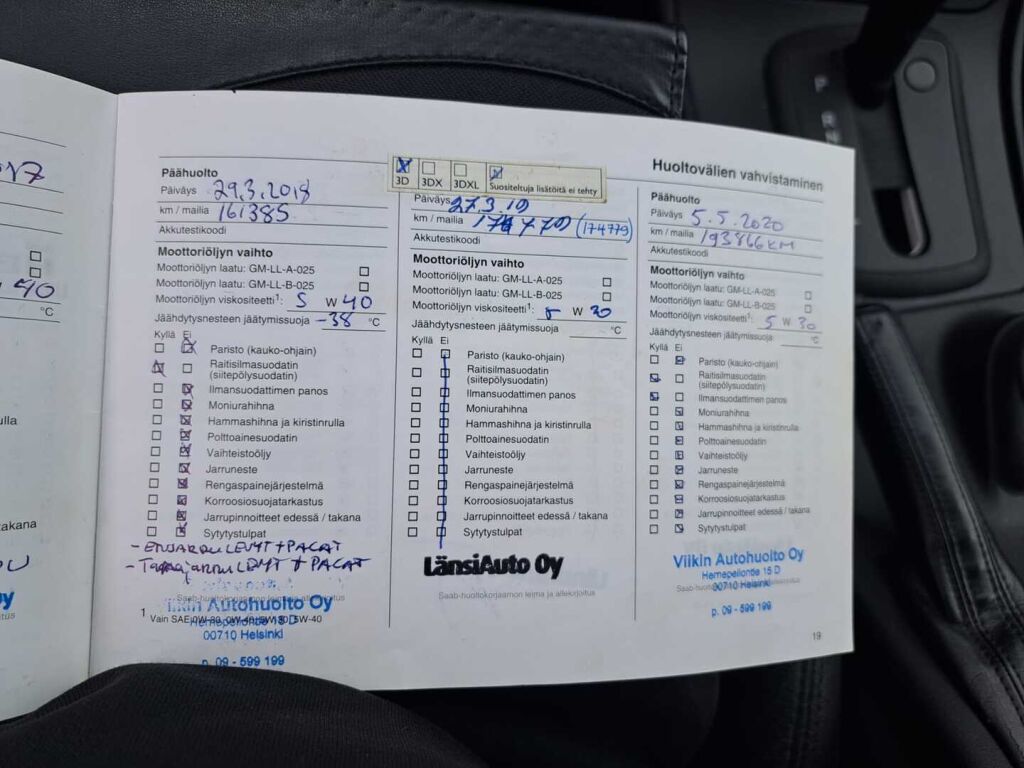 Huoltovälien vahvistaminen
17
40
°C
takana
Päähuolto
Päiväys 29.3.2018
km / mailia 161385
Akkutestikoodi
Moottoriöljyn vaihto
Moottoriöljyn laatu: GM-LL-A-025
Moottoriöljyn laatu: GM-LL-B-025
Moottoriöljyn viskositeetti¹: 5 W 40
Jäähdytysnesteen jäätymissuoja -38 °C
Kyllä Ei
Paristo (kauko-ohjain)
Raitisilmasuodatin
(siitepölysuodatin)
Ilmansuodattimen panos
Moniurahihna
Hammashihna ja kiristinrulla
Polttoainesuodatin
Vaihteistoöljy
Jarruneste
Rengaspainejärjestelmä
Korroosiosuojatarkastus
Jarrupinnoitteet edessä / takana
Sytytystulpat
- ETUJARRU LEVYT + PALAT
- TAKAJARRU LEVYT + PALAT
Saab-huoltokorjaamon leima ja allekirjoitus
Viikin Autohuolto Oy
Hernepellontie 15 D
00710 Helsinki
p. 09 - 599 199
1 Vain SAE 0W-30, 0W-40, 5W-30, 5W-40
3D 3DX 3DXL Suositeltuja lisätöitä ei tehty
Päiväys 27.3.19
km / mailia 174779 (174779)
Akkutestikoodi
Moottoriöljyn vaihto
Moottoriöljyn laatu: GM-LL-A-025
Moottoriöljyn laatu: GM-LL-B-025
Moottoriöljyn viskositeetti¹: 5 W 30
Jäähdytysnesteen jäätymissuoja °C
Kyllä Ei
Paristo (kauko-ohjain)
Raitisilmasuodatin
(siitepölysuodatin)
Ilmansuodattimen panos
Moniurahihna
Hammashihna ja kiristinrulla
Polttoainesuodatin
Vaihteistoöljy
Jarruneste
Rengaspainejärjestelmä
Korroosiosuojatarkastus
Jarrupinnoitteet edessä / takana
Sytytystulpat
LänsiAuto Oy
Saab-huoltokorjaamon leima ja allekirjoitus
Päähuolto
Päiväys 5.5.2020
km / mailia 193866 KM
Akkutestikoodi
Moottoriöljyn vaihto
Moottoriöljyn laatu: GM-LL-A-025
Moottoriöljyn laatu: GM-LL-B-025
Moottoriöljyn viskositeetti¹: 5 W 30
Jäähdytysnesteen jäätymissuoja °C
Kyllä Ei
Paristo (kauko-ohjain)
Raitisilmasuodatin
(siitepölysuodatin)
Ilmansuodattimen panos
Moniurahihna
Hammashihna ja kiristinrulla
Polttoainesuodatin
Vaihteistoöljy
Jarruneste
Rengaspainejärjestelmä
Korroosiosuojatarkastus
Jarrupinnoitteet edessä / takana
Sytytystulpat
Viikin Autohuolto Oy
Hernepellontie 15 D
00710 Helsinki
p. 09 - 599 199
19
P
R